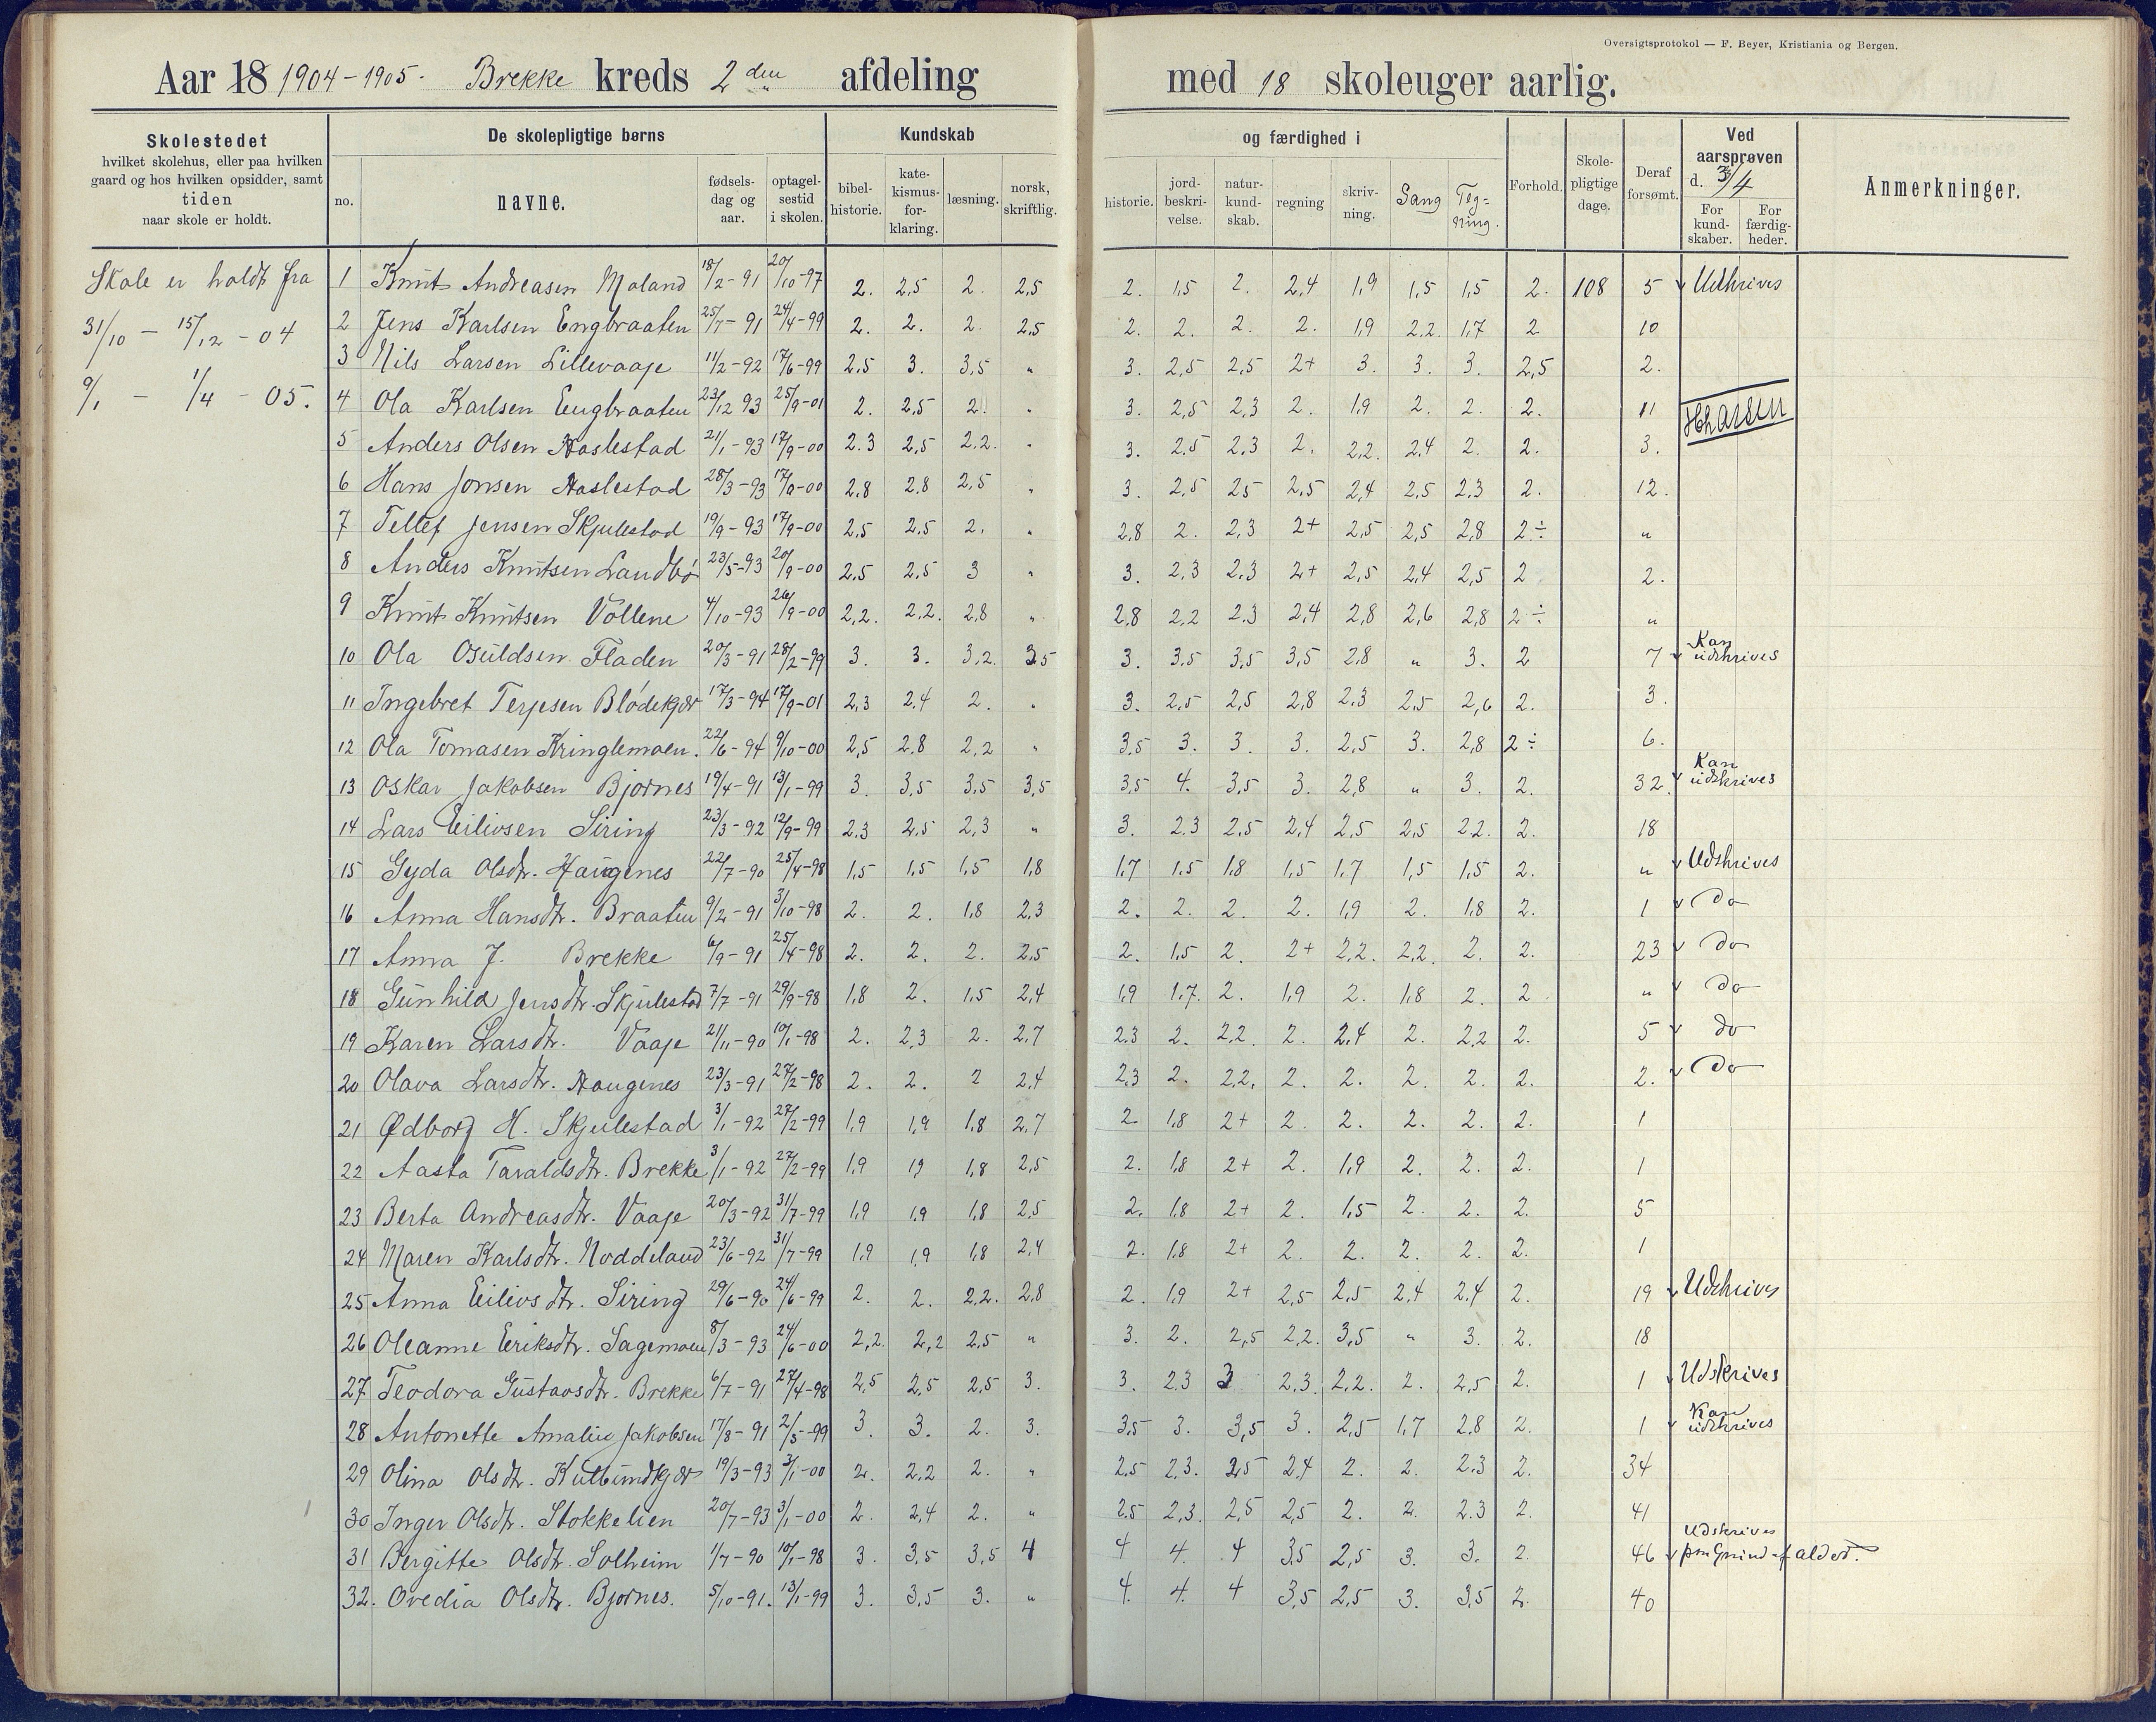 Oversigtsprotokol — F. Beyer, Kristiania og Bergen.
Aar 18 1904-1905. Brekke kreds 2den afdeling med 18 skoleuger aarlig.
Skolestedet
hvilket skolehus, eller paa hvilken
gaard og hos hvilken opsidder, samt
tiden
naar skole er holdt.
De skolepligtige børns
no.
navne.
fødsels-
dag og
aar.
optagel-
sestid
i skolen.
Kundskab og færdighed i
bibel-
historie.
kate-
kismus-
for-
klaring.
læsning.
norsk,
skriftlig.
historie.
jord-
beskri-
velse.
natur-
kund-
skab.
regning
skriv-
ning.
Sang
Teg=
ning.
Forhold.
Skole-
pligtige
dage.
Deraf
forsømt.
Ved
aarsprøven
d. 3/4
For
kund-
skaber.
For
færdig-
heder.
Anmerkninger.
Skole er holdt fra
31/10 - 15/12 - 04
9/1 - 1/4 - 05.
1 Knut Andreasen Moland 18/2-91 20/10-97 2. 2,5 2. 2,5 2. 1,5 2. 2,4 1,9 1,5 1,5 2. 108 5 Udskrives
2 Jens Karlsen Engbraaten 25/7-91 24/4-99 2. 2. 2. 2,5 2. 2. 2. 2. 1,9 2.2. 1,7 2 10
3 Nils Larsen Lillevaaje 11/2-92 17/6-99 2.5 3. 3,5 " 3. 2,5 2,5 2+ 3. 3. 3. 2,5 2.
4 Ola Karlsen Engbraaten 23/12 93 25/9-01 2. 2,5 2. " 3. 2,5 2,3 2. 1,9 2. 2. 2. 11
5 Anders Olsen Haslestad 21/1-93 17/9-00 2.3 2,5 2,2. " 3. 2,5 2,3 2. 2,2. 2,4 2. 2. 3.
6 Hans Jonsen Haslestad 28/3-93 17/9-00 2,8 2,8 2,5 " 3. 2,5 25 2,5 2,4 2,5 2,3 2. 12.
7 Tellef Jensen Skjulestad 19/9-93 17/9-00 2,5 2,5 2. " 2,8 2. 2,3 2+ 2,5 2,5 2,8 2÷ "
8 Anders Knutsen Landbø 23/5-93 20/9-00 2,5 2,5 3 " 3. 2,3 2,3 2+ 2,5 2,4 2,5 2 2.
9 Knut Knutsen Vollene 4/10-93 26/9-00 2,2. 2,2. 2,8 " 2,8 2,2 2.3 2,4 2,8 2,6 2,8 2÷ "
10 Ola Osuldsen Fladen 20/3-91 28/2-99 3. 3. 3,2. 3.5 3. 3,5 3,5 3,5 2,8 " 3. 2 7 Kan udskrives
11 Ingebret Terjesen Blødekjær 17/3-94 17/9-01 2,3 2,4 2. " 3. 2,5 2,5 2,8 2.3 2,5 2,6 2. 3.
12 Ola Tomasen Kringlemoen. 22/6-94 9/10-00 2,5 2,8 2,2 " 3,5 3. 3. 3. 2,5 3. 2,8 2÷ 6.
13 Oskar Jakobsen Bjørnes 19/4-91 13/1-99 3. 3,5 3,5 3,5 3,5 4. 3,5 3. 2,8 " 3. 2. 32. Kan udskrives
14 Lars Eilivsen Siring 23/3-92 12/9-99 2.3 2,5 2,3 " 3. 2.3 2,5 2,4 2,5 2,5 2.2. 2. 18
15 Gyda Olsdtr. Haugenes 22/7-90 25/4-98 1,5 1,5 1,5 1,8 1,7 1,5 1,8 1,5 1,7 1,5 1,5 2. " Udskrives
16 Anna Hansdtr. Braaten 9/2-91 3/10-98 2. 2. 1,8 2,3 2. 2. 2. 2. 1,9 2. 1,8 2. 1 do
17 Anna J. Brekke 6/9-91 25/4-98 2. 2. 2. 2,5 2. 1,5 2. 2+ 2,2. 2,2. 2. 2. 23 do
18 Gunhild Jensdtr. Skjulestad 7/7-91 29/9-98 1,8 2. 1,5 2,4 1,9 1,7. 2. 1,9 2. 1,8 2. 2 " do
19 Karen Larsdtr. Vaaje 21/11-90 10/1-98 2. 2,3 2. 2,7 2,3 2. 2,2. 2. 2,4 2. 2,2 2. 5 do
20 Olava Larsdtr. Haugenes 23/3-91 27/2-98 2. 2. 2 2,4 2,3 2. 2,2. 2. 2. 2. 2. 2. 2. do
21 Ødborg H. Skjulestad 3/1-92 27/2-99 1,9 1,9 1,8 2,7 2. 1,8 2+ 2. 2. 2. 2. 2. 1
22 Aasta Taraldsdtr. Brekke 3/1-92 27/2-99 1,9 19 1,8 2,5 2. 1,8 2+ 2. 1,9 2. 2. 2. 1
23 Berta Andreasdtr. Vaaje 20/3-92 31/7-99 1,9 1,9 1,8 2,5 2. 1,8 2+ 2. 1,5 2. 2. 2. 5
24 Maren Karlsdtr. Noddeland 23/6-92 31/7-99 1,9 1,9 1,8 2,4 2. 1,8 2+ 2. 2. 2. 2. 2. 1
25 Anna Eilivsdtr. Siring 29/6-90 24/6-99 2. 2. 2,2. 2,8 2. 1,9 2+ 2,5 2,5 2,4 2,4 2. 19 Udskrives
26 Oleanne Eeriksdtr. Sagemoen 8/3-93 24/6-00 2,2. 2,2 2,5 " 3. 2. 2,5 2,2. 3,5 " 3. 2. 18
27 Teodora Gustavsdtr. Brekke 6/7-91 27/4-98 2,5 2,5 2,5 3. 3. 2,3 3 2,3. 2,2. 2. 2,5 2. 1 Udskrives
28 Antonette Amalie Jakobsen 17/8-91 2/5-99 3. 3. 2. 3. 3,5 3. 3,5 3. 2,5 1,7 2,8 2. 1 Kan udskrives
29 Olina Olsdtr. Kutbundkjær 19/3-93 3/1-00 2. 2,2 2. " 2.5 2,3. 2,5 2,4 2. 2. 2.3 2. 34
30 Inger Olsdtr. Stokkelien 20/7-93 3/1-00 2. 2,4 2. " 2.5 2,3. 2,5 2,5 2. 2. 2.3 2. 41
31 Bergitte Olsdtr. Solheim 1/7-90 10/1-98 3. 3,5 3,5 4 4 4. 4 3,5 2,5 3. 3. 2. 46 Udskrives paa Grund af alder.
32. Ovedia Olsdtr. Bjørnes. 5/10-91. 13/1-99 3. 3,5 3. " 4. 4. 4 3,5 2,5 3. 3,5 2. 40